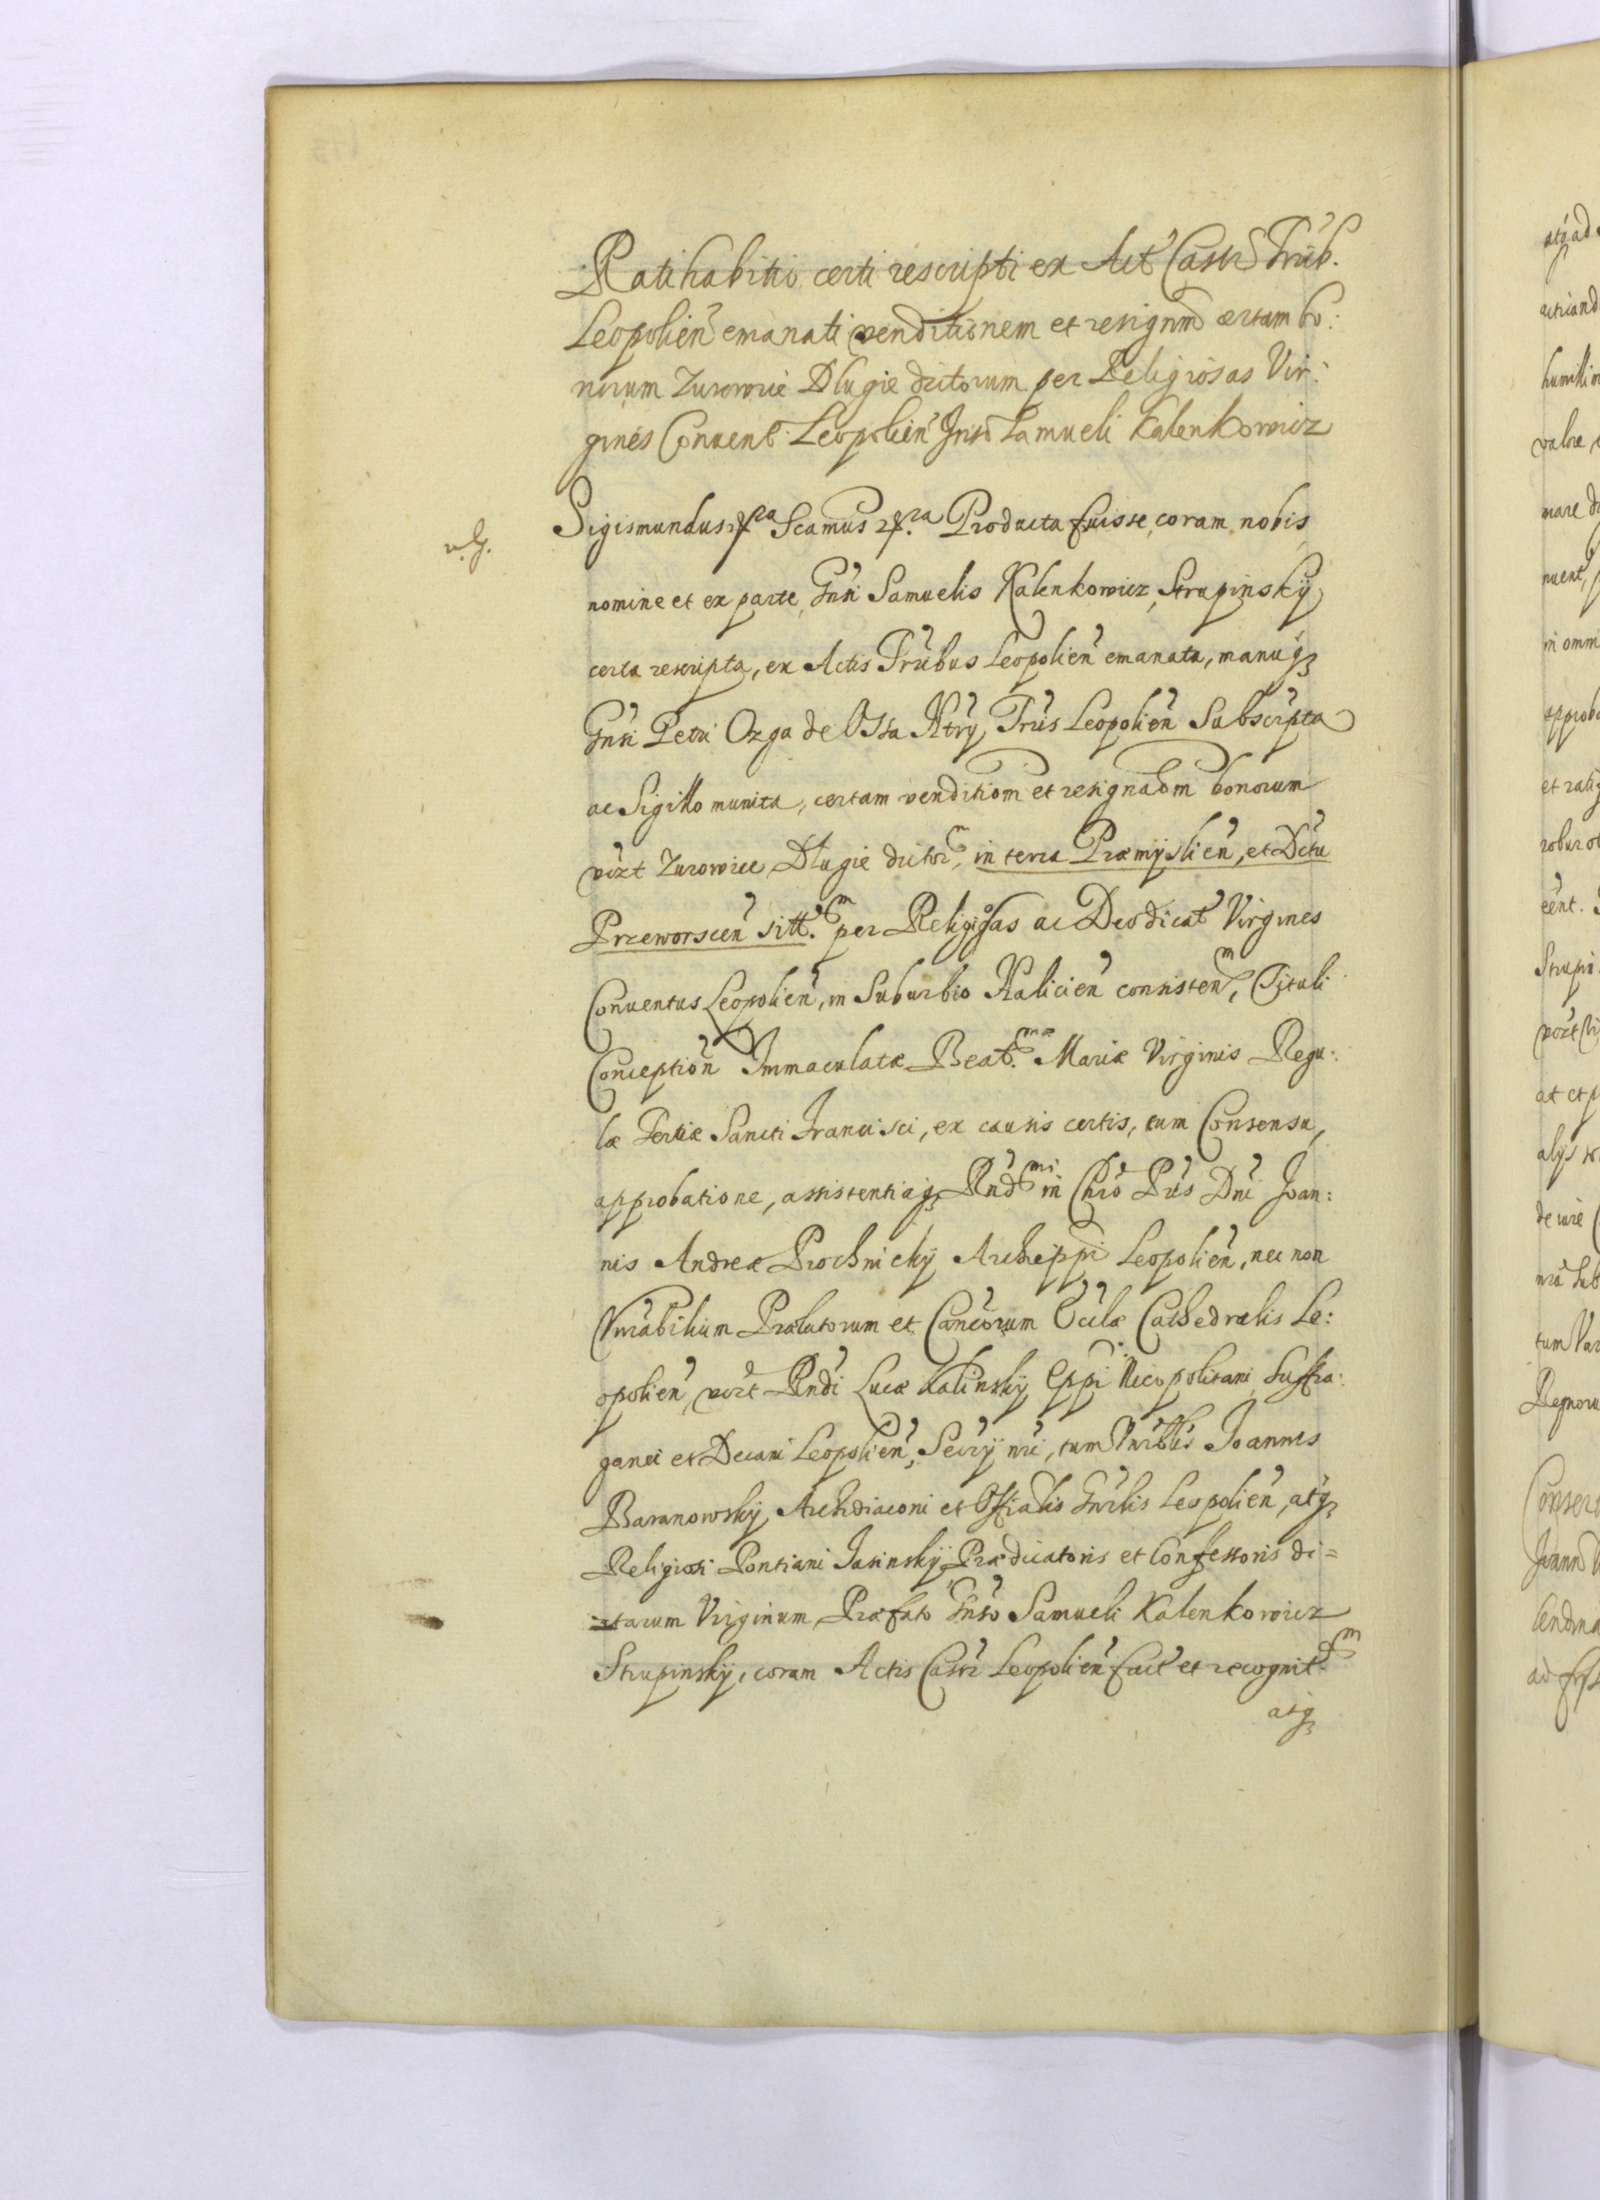 Ratihabitio certi rescripti ex Act Castr Trib.
Leopolien emanati venditionem et resignm certam bo:
norum Zurowice Dlugie dictorum per Religiosas Vir:
gines Conuent Leopolien Gnso Samueli Kalenkowicz
Sigismundus Scamus Producta fuisse coram nobis
nomine et ex parte Gnsi Samuelis Kalenkowicz Strupinskÿ
certa rescripta, ex Actis Trribus Leopolien emanata, manuq
Gnsi Petri Ozga de Ossa Ntrÿ Tris Leopolien Subscripta
ac Sigillo munita, certam venditiom et resignaom bonorum
vizt Zurowice Dlugie dictor, in terra Præmÿslien, et Dctu
Przeworscen sitt. per Religiosas ac Deo dicat Virgines
Conuentus Leopolien, in Suburbio Halicien consisten, Tituli
Conception Immaculatæ Beat.mæ Mariæ Virginis Regu:
læ Tertiæ Sancti Francisci, ex causis certis, cum Consensu,
approbatione, assistentiaq Rndmi in Chro Pris Dni Joan:
nis Andreæ Prochnickÿ Archieppi Leopolien, nec non
Vnrabilium Prælatorum et Canicorum Ecclæ Cathedralis Le:
opolien, vizt Rndi Lucæ Kalinskÿ Eppi Nicopolitani Suffra:
ganei et Decani Leopolien, Secrÿ nri, tum Vnrblis Joannis
Baranowskÿ Archidiaconi et Offialis Gnrlis Leopolien, atq
Religiosi Pontiani Jasinskÿ Prædicatoris et Confessoris di=
ctarum Virginum Præfato Gnso Samueli Kalenkowicz
Strupinskÿ, coram Actis Castr Leopolien fact et recognit
atq